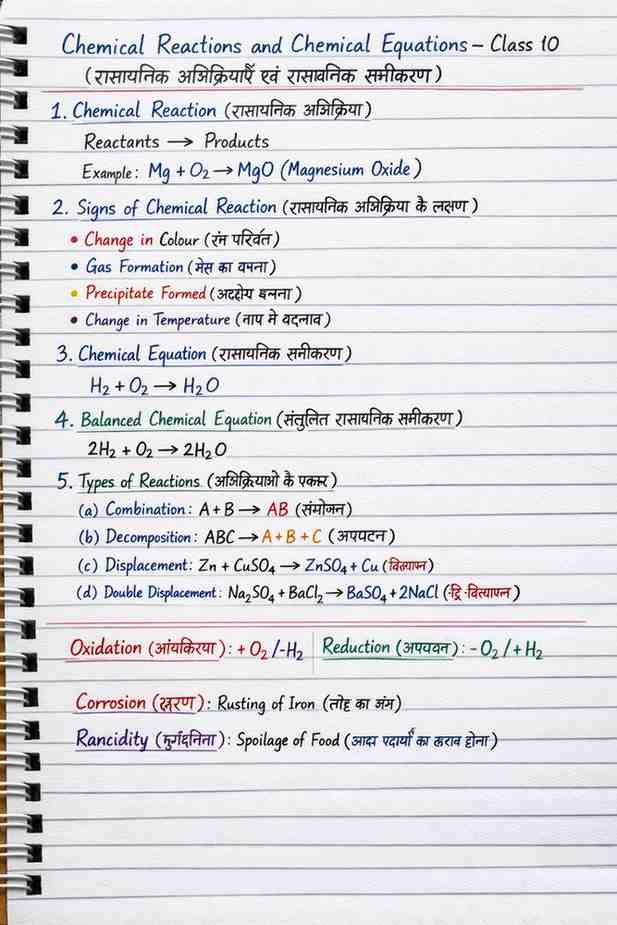 Chemical Reactions and Chemical Equations – Class 10
(रासायनिक अभिक्रियाएँ एवं रासावनिक समीकरण)
1. Chemical Reaction (रासायनिक अभिक्रिया)
Reactants → Products
Example: Mg + O₂ → MgO (Magnesium Oxide)
2. Signs of Chemical Reaction (रासायनिक अभिक्रिया के लक्षण)
• Change in Colour (रंग परिवर्त)
• Gas Formation (मेस का वमना)
• Precipitate Formed
• Change in Temperature (ताप मे वदलाव)
3. Chemical Equation (रासायनिक समीकरण)
H₂ + O₂ → H₂O
4. Balanced Chemical Equation (संतुलित रासायनिक समीकरण)
2H₂ + O₂ → 2H₂O
5. Types of Reactions (अभिक्रियाओ के एकार)
(a) Combination: A + B → AB (संमोजन)
(b) Decomposition: ABC → A + B + C (अपघटन)
(c) Displacement: Zn + CuSO₄ → ZnSO₄ + Cu
(d) Double Displacement: Na₂SO₄ + BaCl₂ → BaSO₄ + 2NaCl
Oxidation : + O₂ /-H₂ Reduction (अपचयन) : - O₂ / + H₂
Corrosion (क्षरण): Rusting of Iron (लोह का जंग)
Rancidity : Spoilage of Food